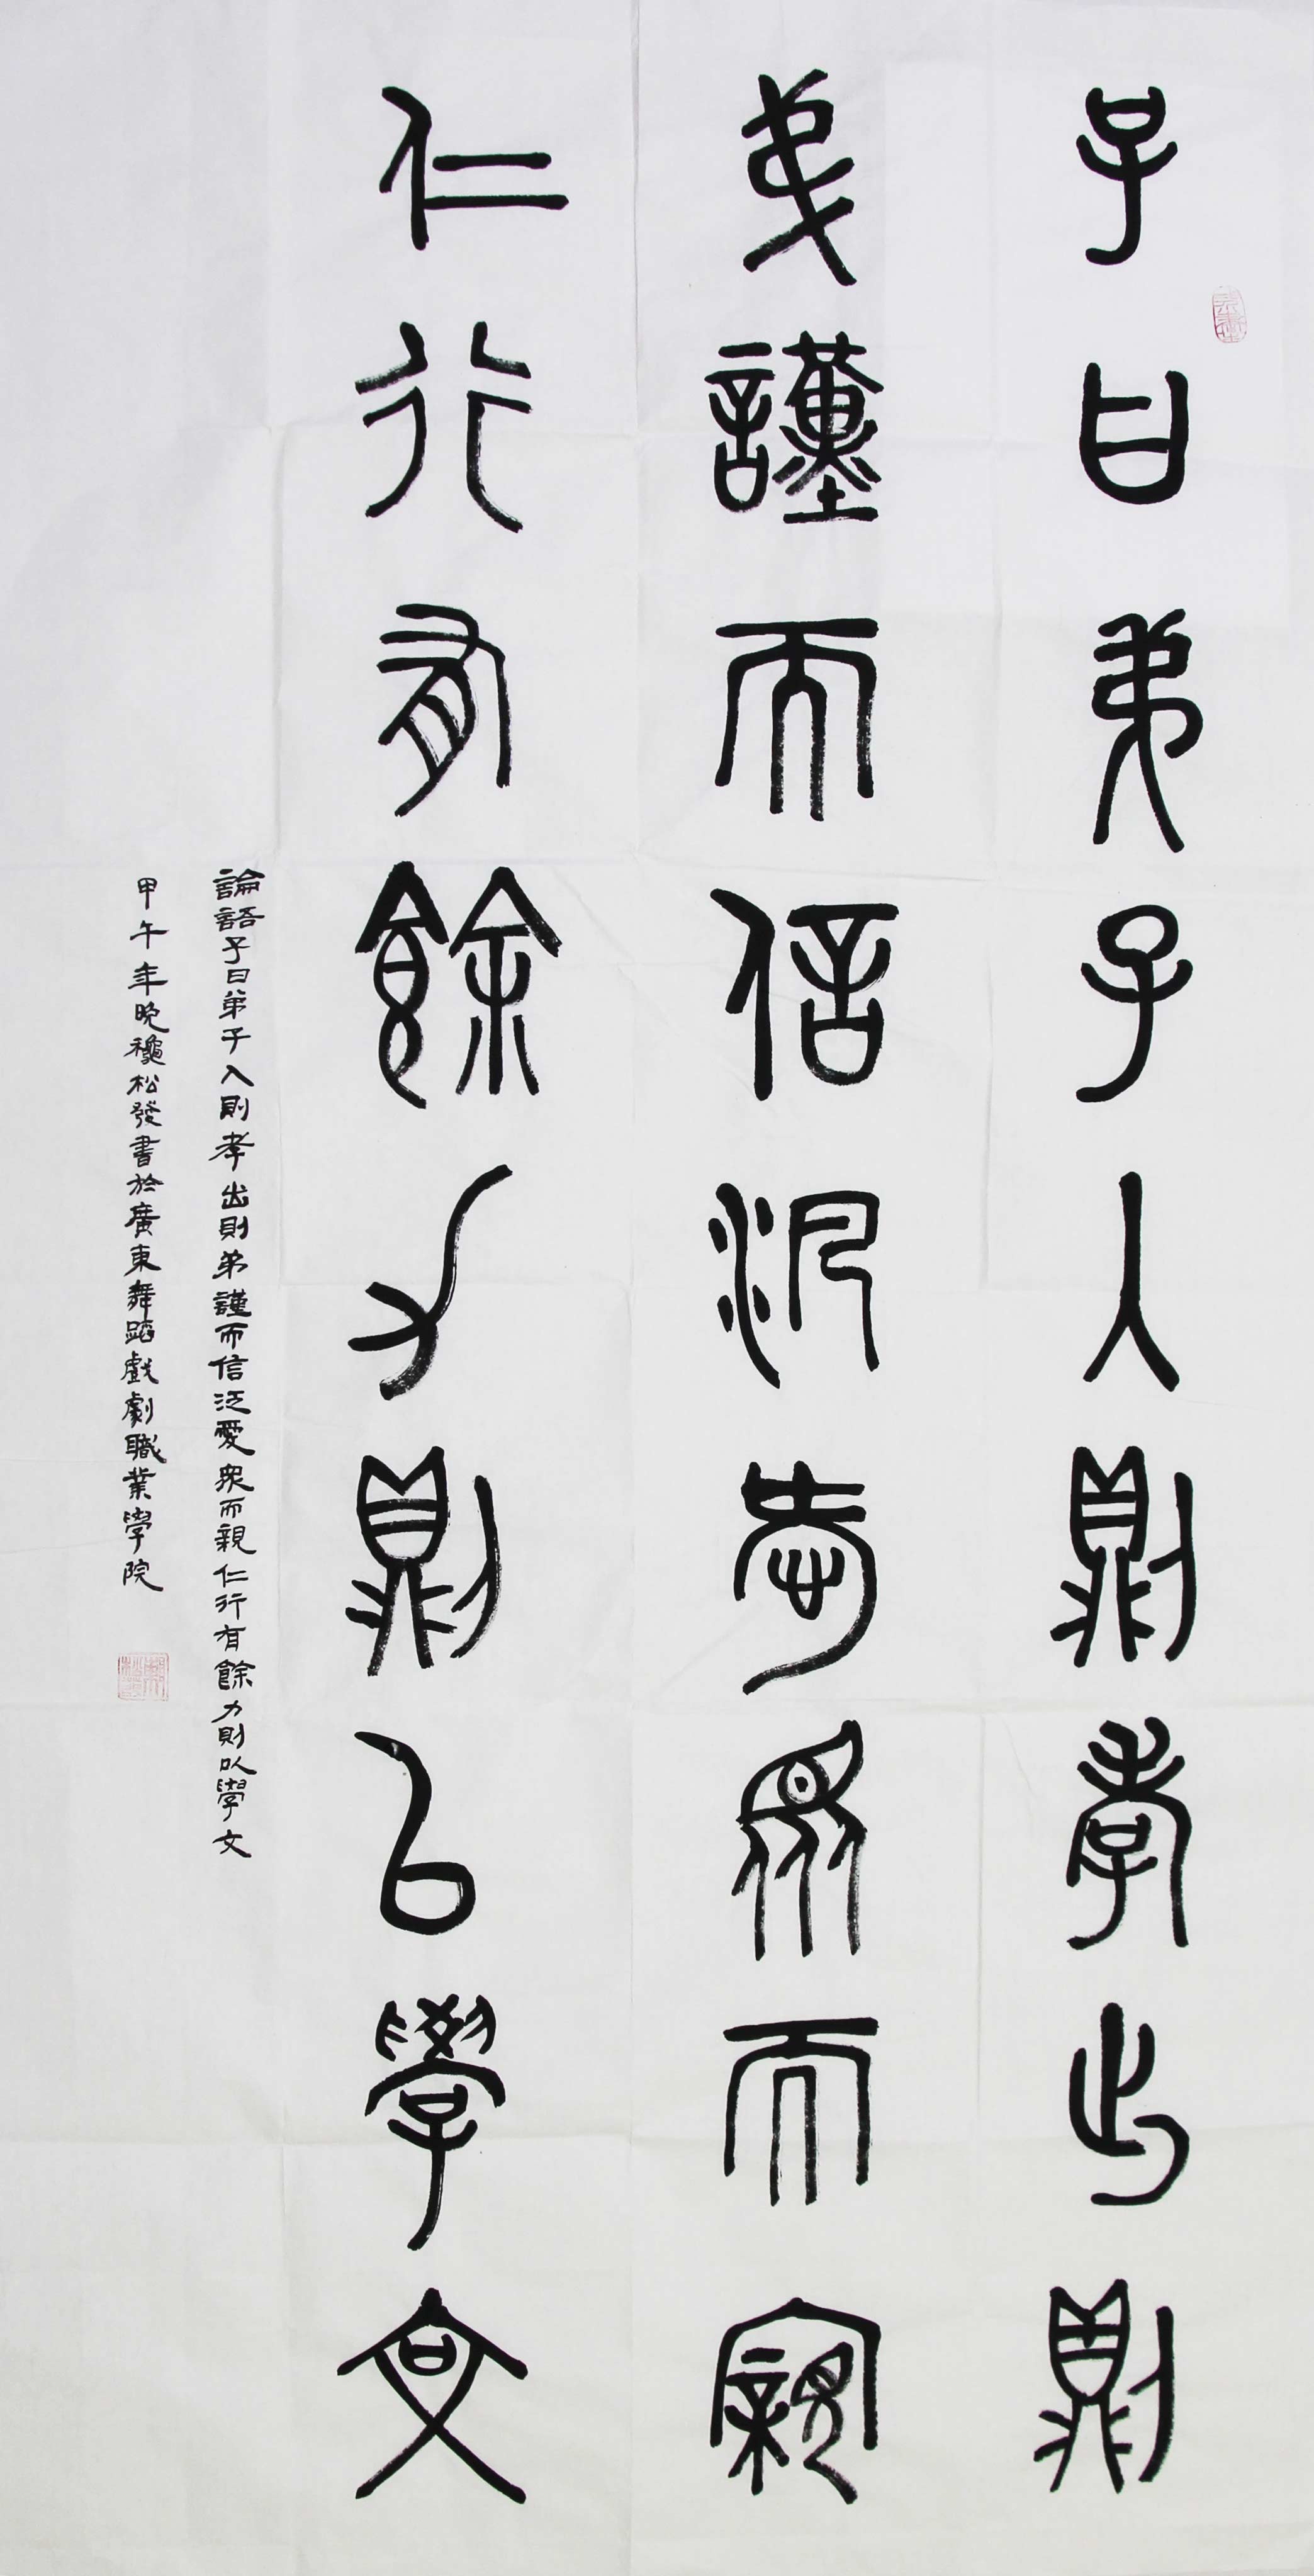 子曰弟子入則孝出則
弟謹而信汎愛眾而親
仁行有餘力則以學文
論語子曰弟子入則孝出則弟謹而信泛愛眾而親仁行有餘力則以學文
甲午年晚龝松發書於廣東舞蹈戲劇職業學院